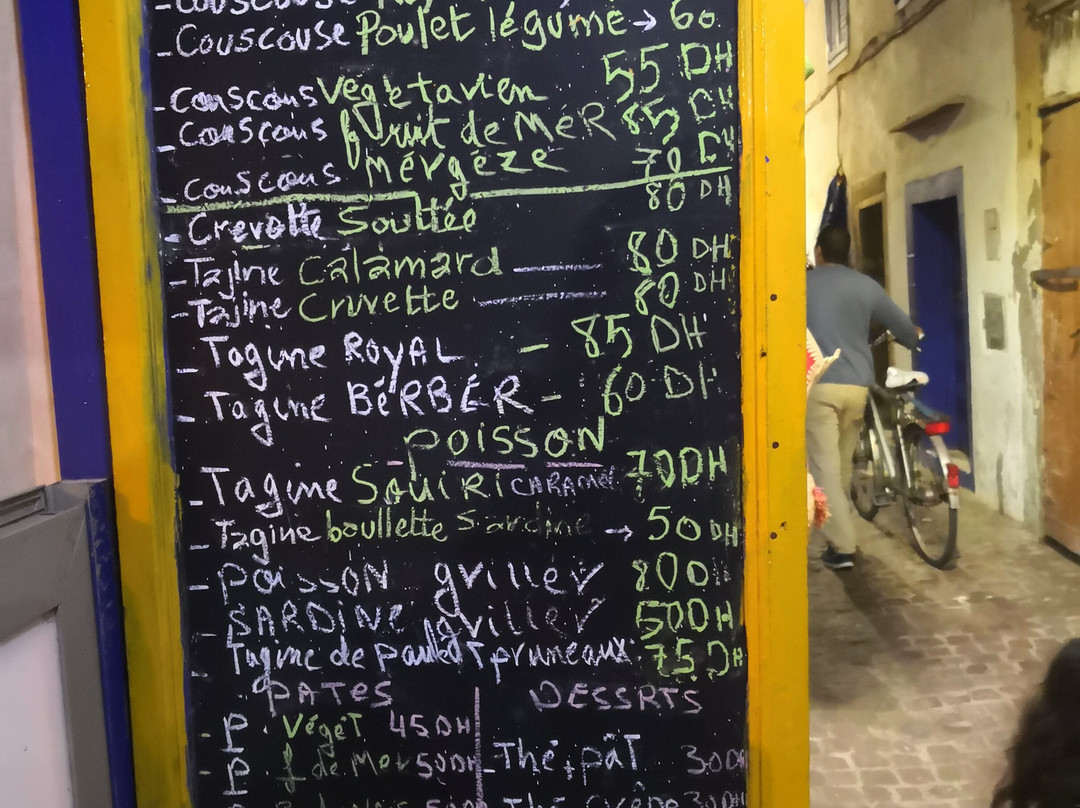 -Couscouse
-Couscouse Poulet légume → 60
-Couscous Végétavien 55 DH
-Couscous fruit de MéR 85 DH
-Couscous mérgéze 70 DH
-Crevette Souttée 80 DH
-Tajine Calamard 80 DH
-Tajine Cruvette 80 DH
-Tagine RoyAL - 85 DH
-Tagine BéRBER - 60 DH
POISSON
-Tagine SouiRi CARAMEL 70DH
-Tagine boullette Sardine → 50 DH
-poissoN grillér 80D
-SARDINE grillér 50DH
-Tagine de poulet pruneaux 75DH
PATES DESSRTS
-P. Végét 45DH
-P f de Mer 50DH -Thé, pât 30DH
30DH